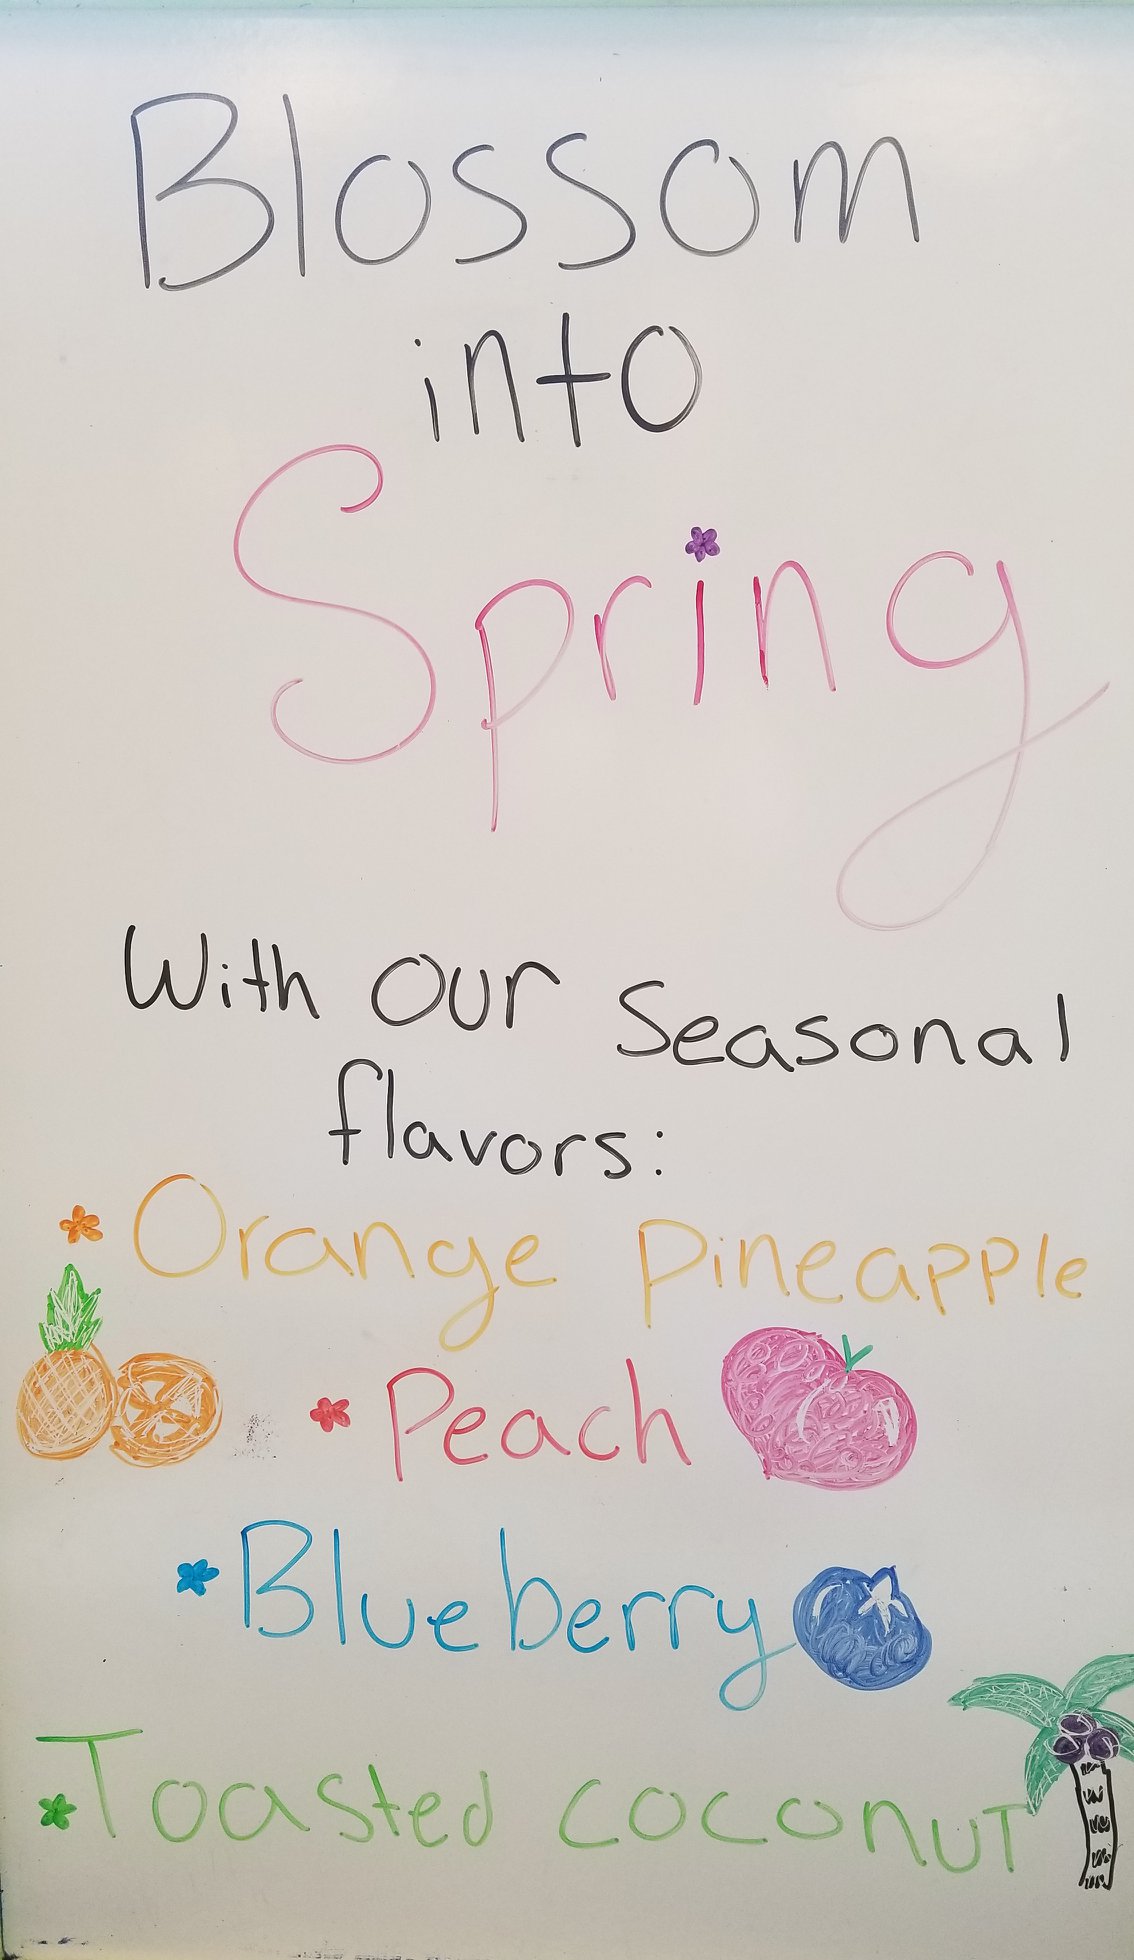 Blossom
into
Spring
With our Seasonal
flavors:
* Orange pineapple
* Peach
* Blueberry
* Toasted coconut